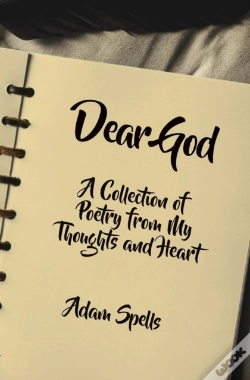 Dear God
A Collection of
Poetry from My
Thoughts and Heart
Adam Spells
wook